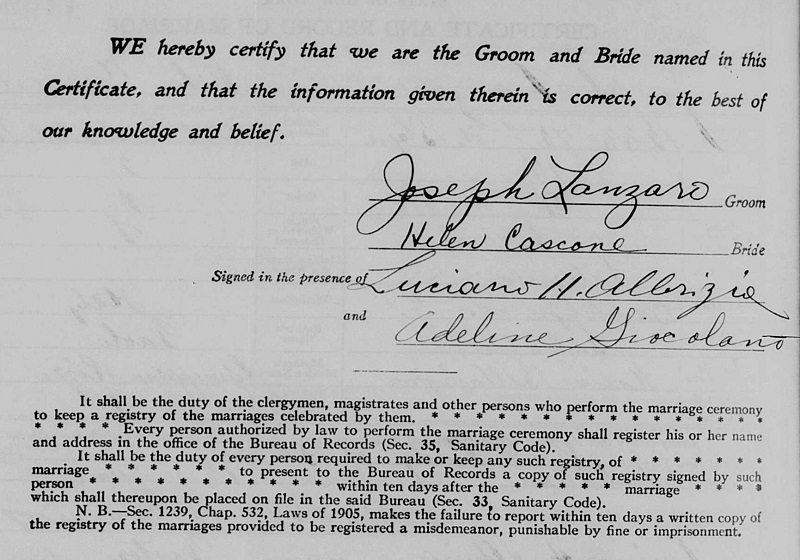 WE hereby certify that we are the Groom and Bride named in this
Certificate, and that the information given therein is correct, to the best of
our knowledge and belief.
Joseph Lanzaro Groom
Helen Cascone Bride
Signed in the presence of Luciano H. Albrizio
and Adeline Giocolano
It shall be the duty of the clergymen, magistrates and other persons who perform the marriage ceremony
to keep a registry of the marriages celebrated by them. * * * * * * * * * * * * * * *
* * * * Every person authorized by law to perform the marriage ceremony shall register his or her name
and address in the office of the Bureau of Records (Sec. 35, Sanitary Code).
It shall be the duty of every person required to make or keep any such registry, of * * * * * * *
marriage * * * * * * to present to the Bureau of Records a copy of such registry signed by such
person * * * * * * * * * * * * within ten days after the * * * * * marriage * * * *
which shall thereupon be placed on file in the said Bureau (Sec. 33, Sanitary Code).
N. B.—Sec. 1239, Chap. 532, Laws of 1905, makes the failure to report within ten days a written copy of
the registry of the marriages provided to be registered a misdemeanor, punishable by fine or imprisonment.